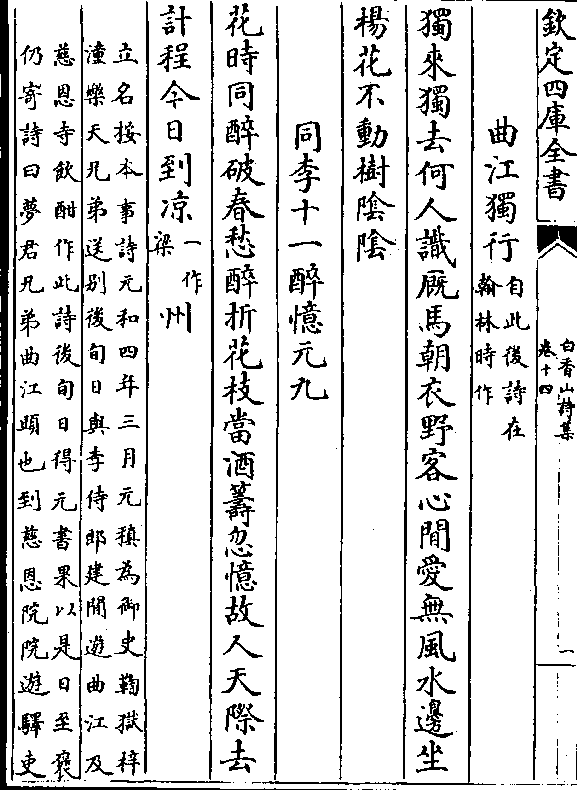 欽定四庫全書
白香山詩集
卷十四
一
曲江獨行自此後詩在
翰林時作
獨來獨去何人識厩馬朝衣野客心閒愛無風水邊坐
楊花不動樹陰陰
同李十一醉憶元九
花時同醉破春愁醉折花枝當酒籌忽憶故人天際去
計程今日到凉一作
梁州
立名按本事詩元和四年三月元稹為御史鞫獄梓
潼樂天兄弟送别後旬日與李侍郎建閒遊曲江及
慈恩寺飲酣作此詩後旬日得元書果以是日至襃
仍寄詩曰夢君兄弟曲江頭也到慈恩院院遊驛吏